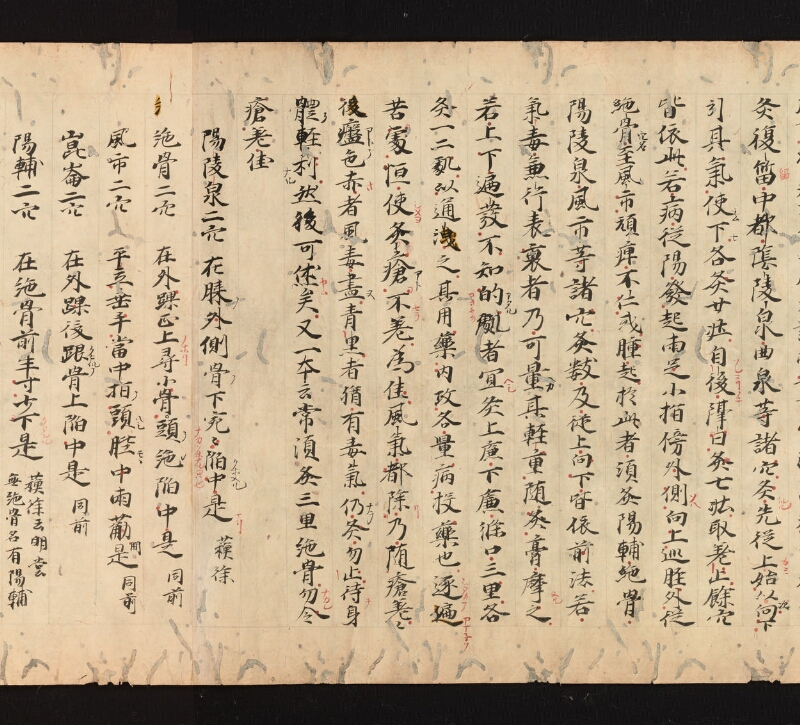 灸復留中都陰陵泉曲泉等諸穴灸先從上始以向下
引其氣使下各灸廿壯自後隔日灸七壯取差止餘穴
皆依此若病從陽發起兩足小指傍外側向上巡脛外從
絶骨至風市頑痺不仁或腫起於此者須灸陽輔絶骨
陽陵泉風市等諸穴灸數及從上向下皆依前法若
氣毒兼行表裏者乃可量其輕重隨灸膏摩之
若上下遍發不知的處者宜灸上廉下廉條口三里各
灸一二所以通洩之其用藥内攻各量病投藥也逐遍
苦處恒使灸瘡不差爲佳風氣都除乃隨瘡差々
後瘢色赤者風毒盡青黑者猶有毒氣仍灸勿止待身
體輕利然後可休矣又一本云常須灸三里絶骨勿令
瘡差佳
陽陵泉二穴 在膝外側骨下宛々陷中是 蘇徐
絶骨二穴 在外踝正上尋小骨頭絶陷中是 同前
風市二穴 平立垂手當中指頭髀中兩筋是 同前
崑崙二穴 在外踝後跟骨上陷中是 同前
陽輔二穴 在絶骨前半寸少下是 蘇徐云明堂
無絶骨名有陽輔